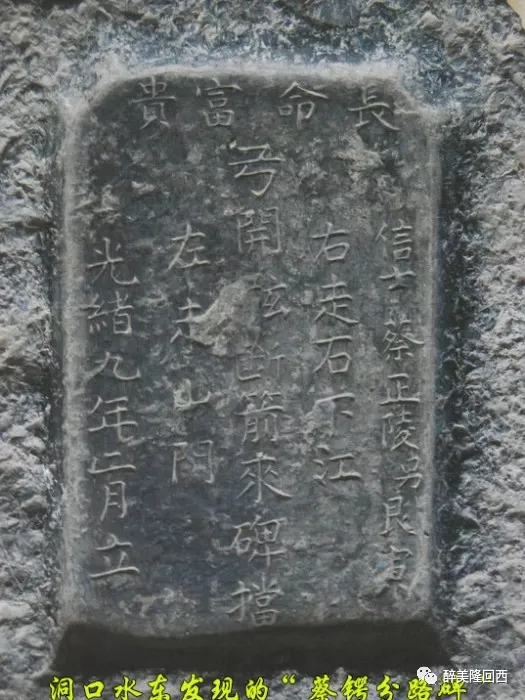 長命富貴
信士蔡正陵男艮寅
右走石下江
弓開弦斷箭來碑擋
左走山門
光緒九年二月立
洞口水东发现的“蔡锷分路碑
醉美隆回西